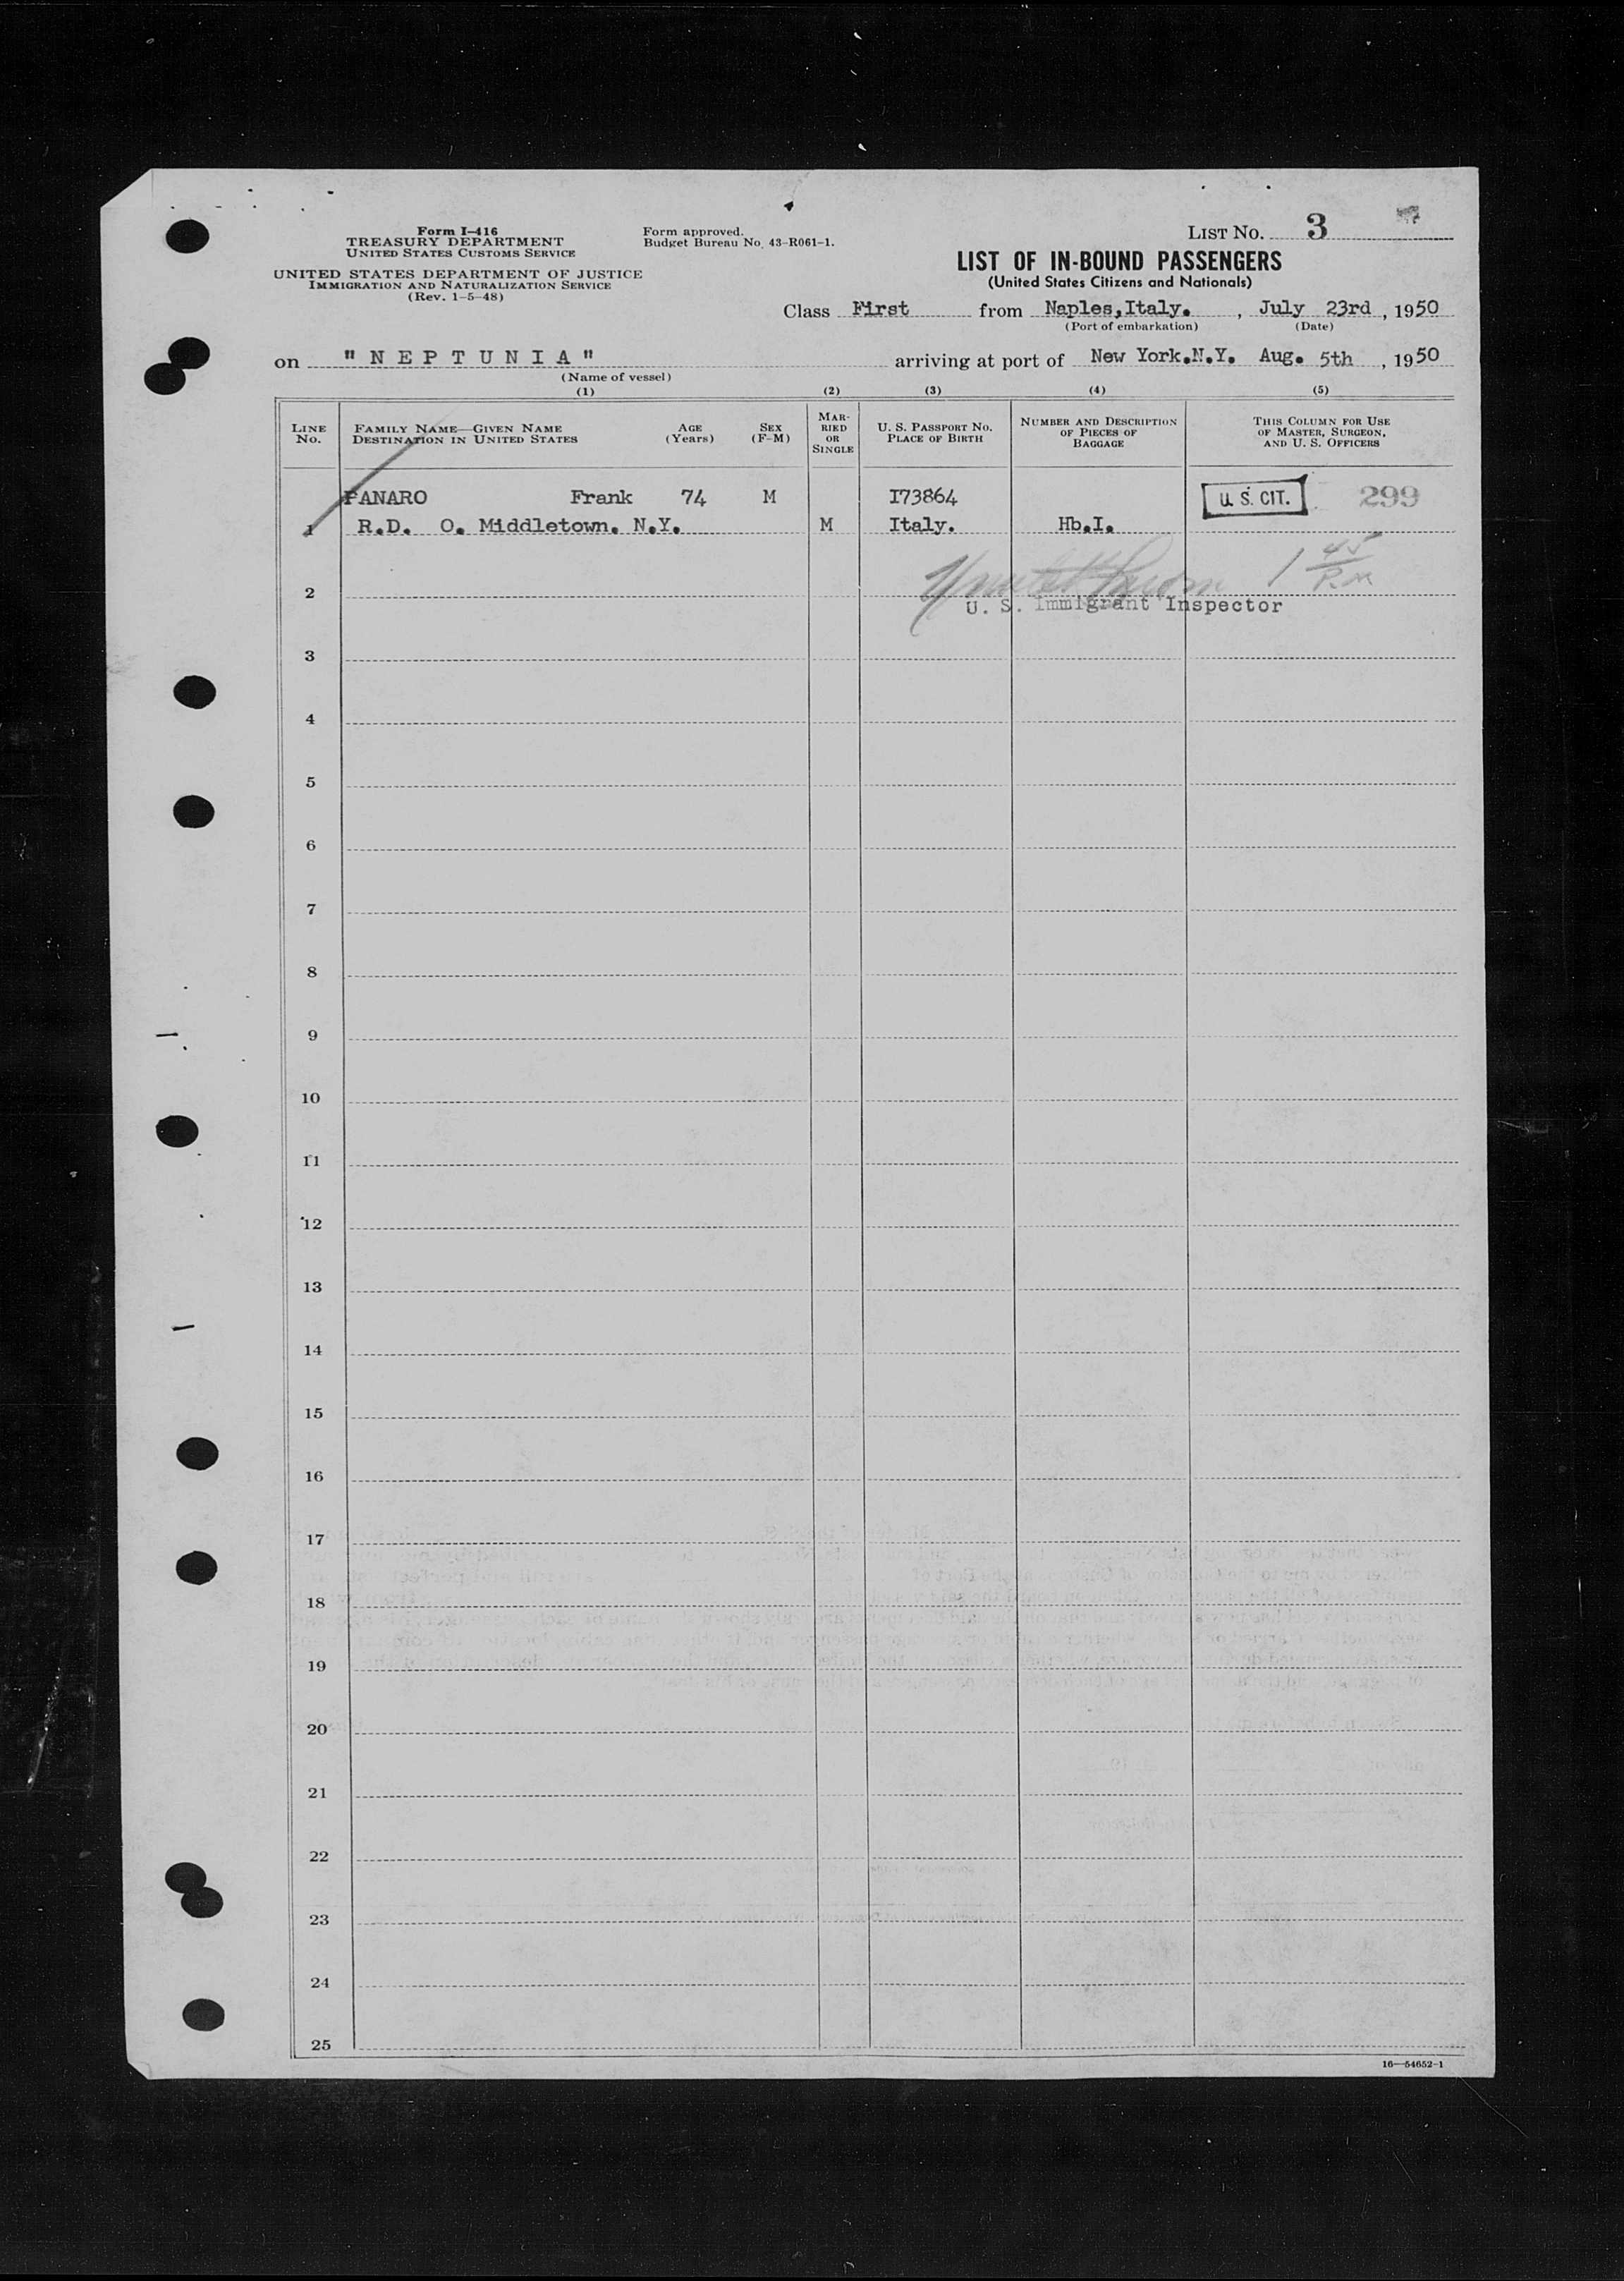 Form I-416
TREASURY DEPARTMENT
UNITED STATES CUSTOMS SERVICE
UNITED STATES DEPARTMENT OF JUSTICE
IMMIGRATION AND NATURALIZATION SERVICE
(Rev. 1-5-48)
Form approved.
Budget Bureau No. 43-R061-1.
LIST NO. 3
LIST OF IN-BOUND PASSENGERS
(United States Citizens and Nationals)
Class First from Naples,Italy. , July 23rd , 1950
(Port of embarkation) (Date)
on "NEPTUNIA" arriving at port of New York.N.Y. Aug. 5th , 1950
(Name of vessel)
(1) (2) (3) (4) (5)
LINE No.
FAMILY NAME—GIVEN NAME
DESTINATION IN UNITED STATES
AGE (Years)
SEX (F-M)
MARRIED OR SINGLE
U. S. PASSPORT NO.
PLACE OF BIRTH
NUMBER AND DESCRIPTION OF PIECES OF BAGGAGE
THIS COLUMN FOR USE OF MASTER, SURGEON, AND U. S. OFFICERS
FANARO Frank 74 M I73864 U. S. CIT. 299
1 R.D. O. Middletown. N.Y. M Italy. Hb.I.
1 45 P.M
2
U. S. Immigrant Inspector
3
4
5
6
7
8
9
10
11
12
13
14
15
16
17
18
19
20
21
22
23
24
25
16—54652-1